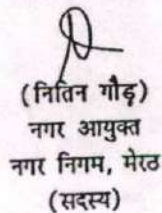 (नितिन गौड़)
नगर आयुक्त
नगर निगम, मेरठ
(सदस्य)